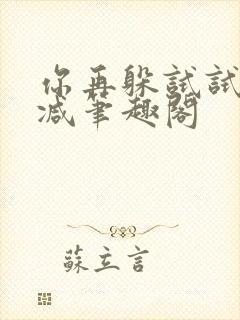 你再躲試試
减筆趣閣
蘇立言